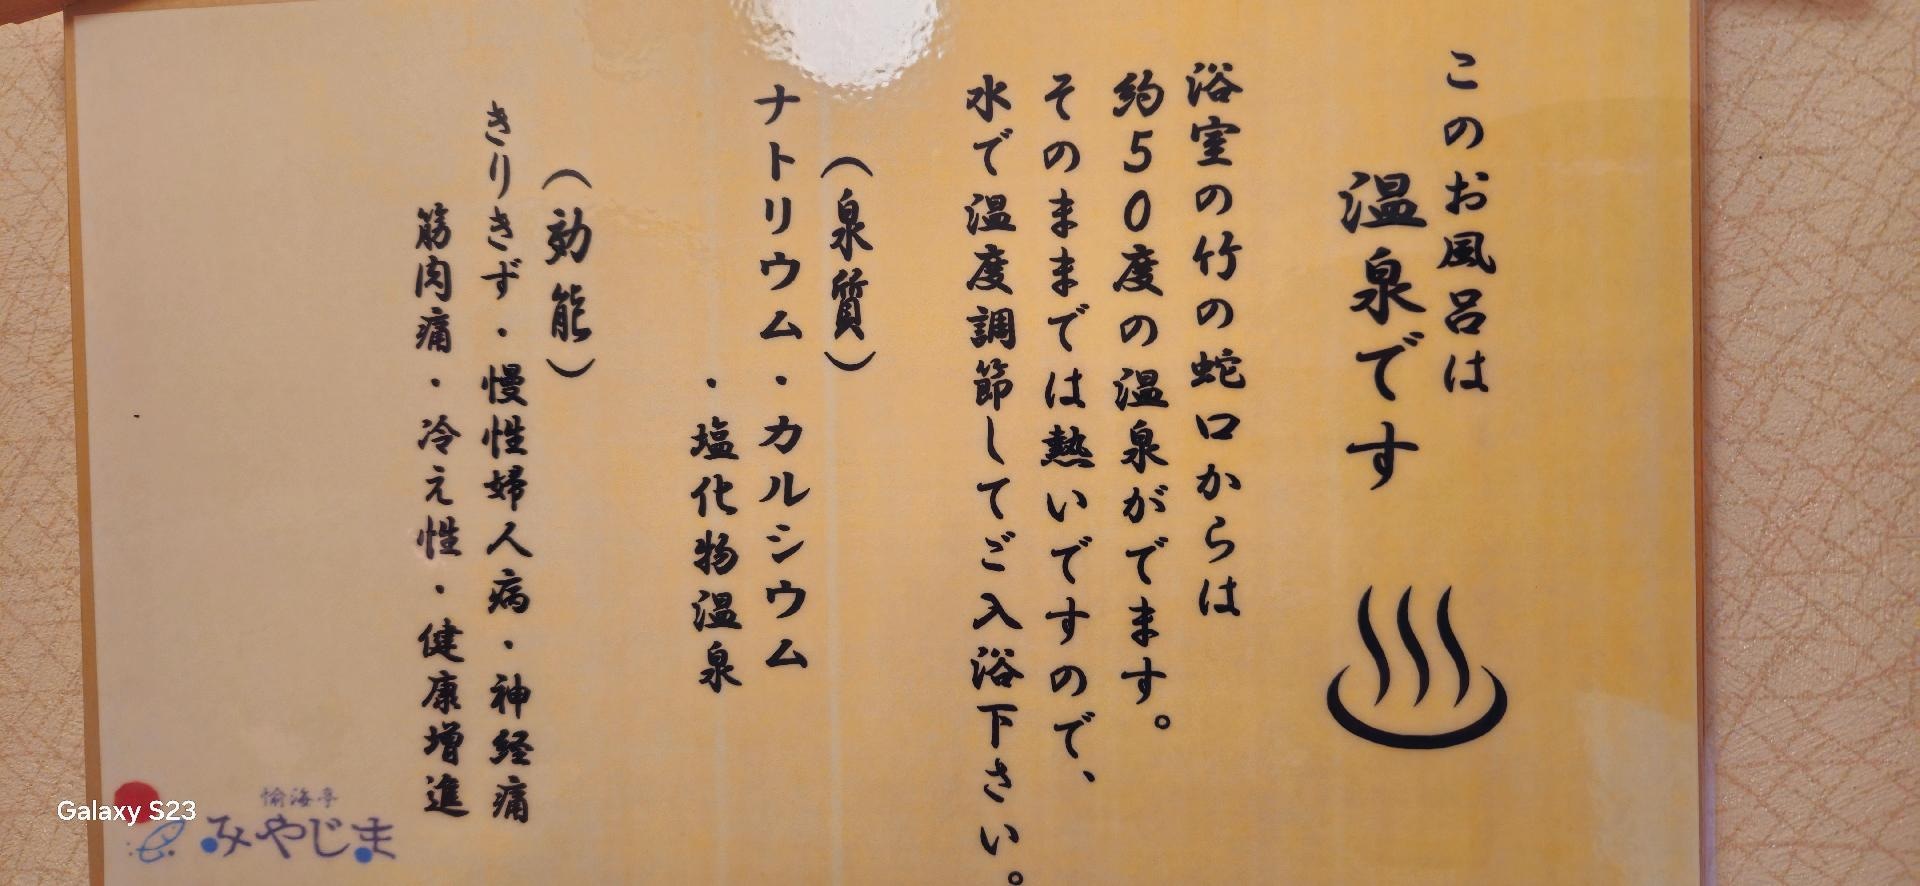 このお風呂は
温泉です
浴室の竹の蛇口からは
約50度の温泉がでます。
そのままでは熱いですので、
水で温度調節してご入浴下さい。
（泉質）
ナトリウム・カルシウム
・塩化物温泉
（効能）
きりきず・慢性婦人病・神経痛
筋肉痛・冷え性・健康増進
愉海亭
みやじま
Galaxy S23